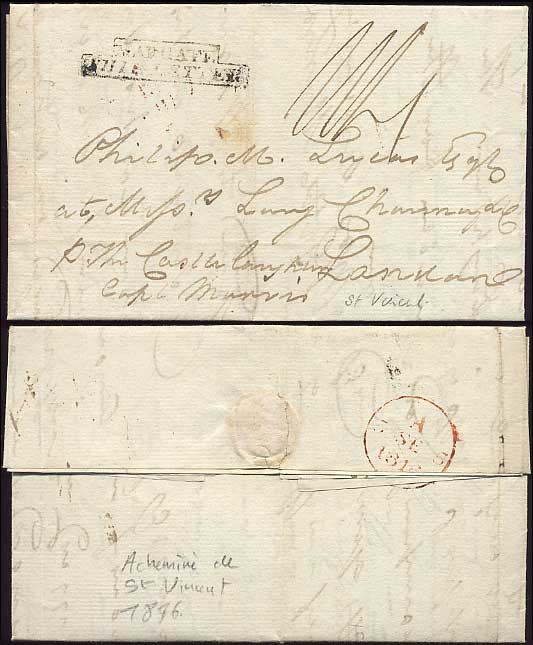 MARGATE
SHIP LETTER
Philip. M. Lucas Esqr
at, Messrs Long
London
Capt Morris
St Vincent
A
SE
181
Acheminé de
St Vincent
1816.